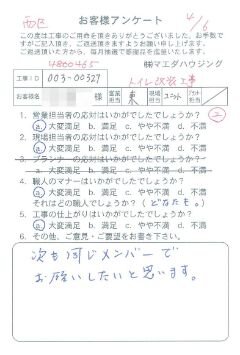 西区 お客様アンケート 4/6
この度は工事のご用命を頂きありがとうございました。お手数で
すがご記入頂き、ご返送頂きますようお願い申し上げます。
ご返送頂いた方から、毎月抽選で感謝品をご進呈いたします。
4860465 ㈱マエダハウジング
工事ID 003-00327 トイレ改装工事
お客様名 様 営業担当 東 現場担当 ユニット
1. 営業担当者の応対はいかがでしたでしょうか? ②
a. 大変満足 b. 満足 c. やや不満 d. 不満
2. 現場担当者の応対はいかがでしたでしょうか?
a. 大変満足 b. 満足 c. やや不満 d. 不満
3. プランナーの応対はいかがでしたでしょうか?
a. 大変満足 b. 満足 c. やや不満 d. 不満
4. 職人のマナーはいかがでしたでしょうか?
a. 大変満足 b. 満足 c. やや不満 d. 不満
それはどの職人でしょうか?(どなたも。)
5. 工事の仕上がりはいかがでしたでしょうか?
a. 大変満足 b. 満足 c. やや不満 d. 不満
6. その他、ご意見・ご要望をお書き下さい。
次も同じメンバーで
お願いしたいと思います。